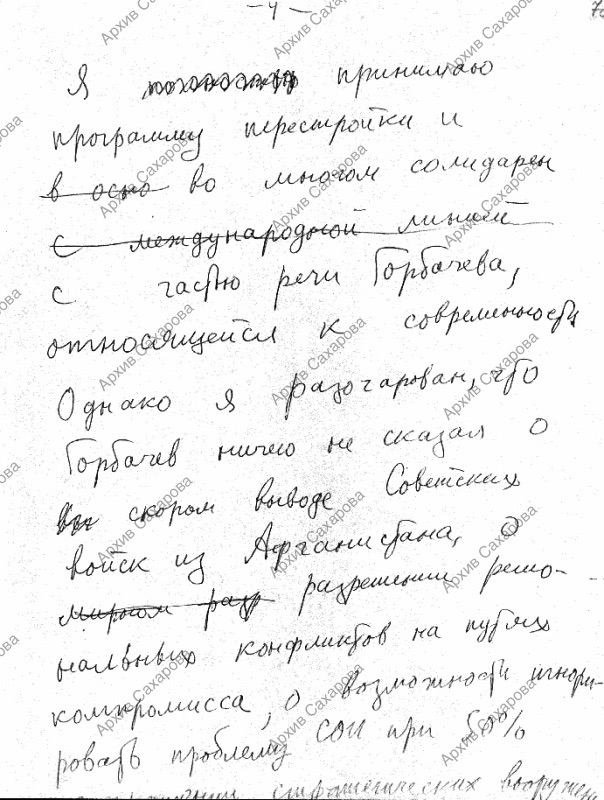 – 4 –
Я принимаю
программу перестройки и
в осно во многом солидарен
с международной линией
с частью речи Горбачева,
относящейся к современности
Однако я разочарован, что
Горбачев ничего не сказал о
вы скором выводе Советских
войск из Афганистана, о
мирном разр разрешении регио-
нальных конфликтов на путях
компромисса, о возможности игнори-
ровать проблему СОИ при 50%
стратегических вооружен